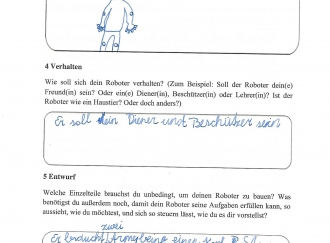 4 Verhalten
Wie soll sich dein Roboter verhalten? (Zum Beispiel: Soll der Roboter dein(e)
Freund(in) sein? Oder ein(e) Diener(in), Beschützer(in) oder Lehrer(in)? Ist der
Roboter wie ein Haustier? Oder doch anders?)
Er soll dein Diener und Beschützer sein
5 Entwurf
Welche Einzelteile brauchst du unbedingt, um deinen Roboter zu bauen? Was
benötigst du außerdem noch, damit dein Roboter seine Aufgaben erfüllen kann, so
aussieht, wie du möchtest, und sich so steuern lässt, wie du es dir vorstellst?
zwei
Er